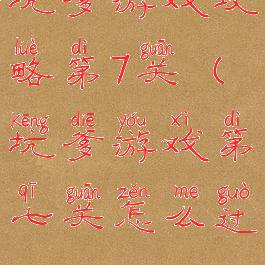 坑爹游戏攻
lüè dì guān
略第7关（
kēng diē yóu xì dì
坑爹游戏第
qī guān zěn me guò
七关怎么过